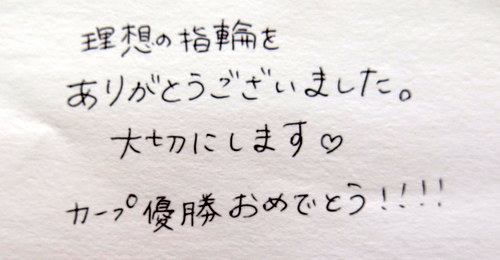 理想の指輪を
ありがとうございました。
大切にします♡
カープ優勝おめでとう!!!!